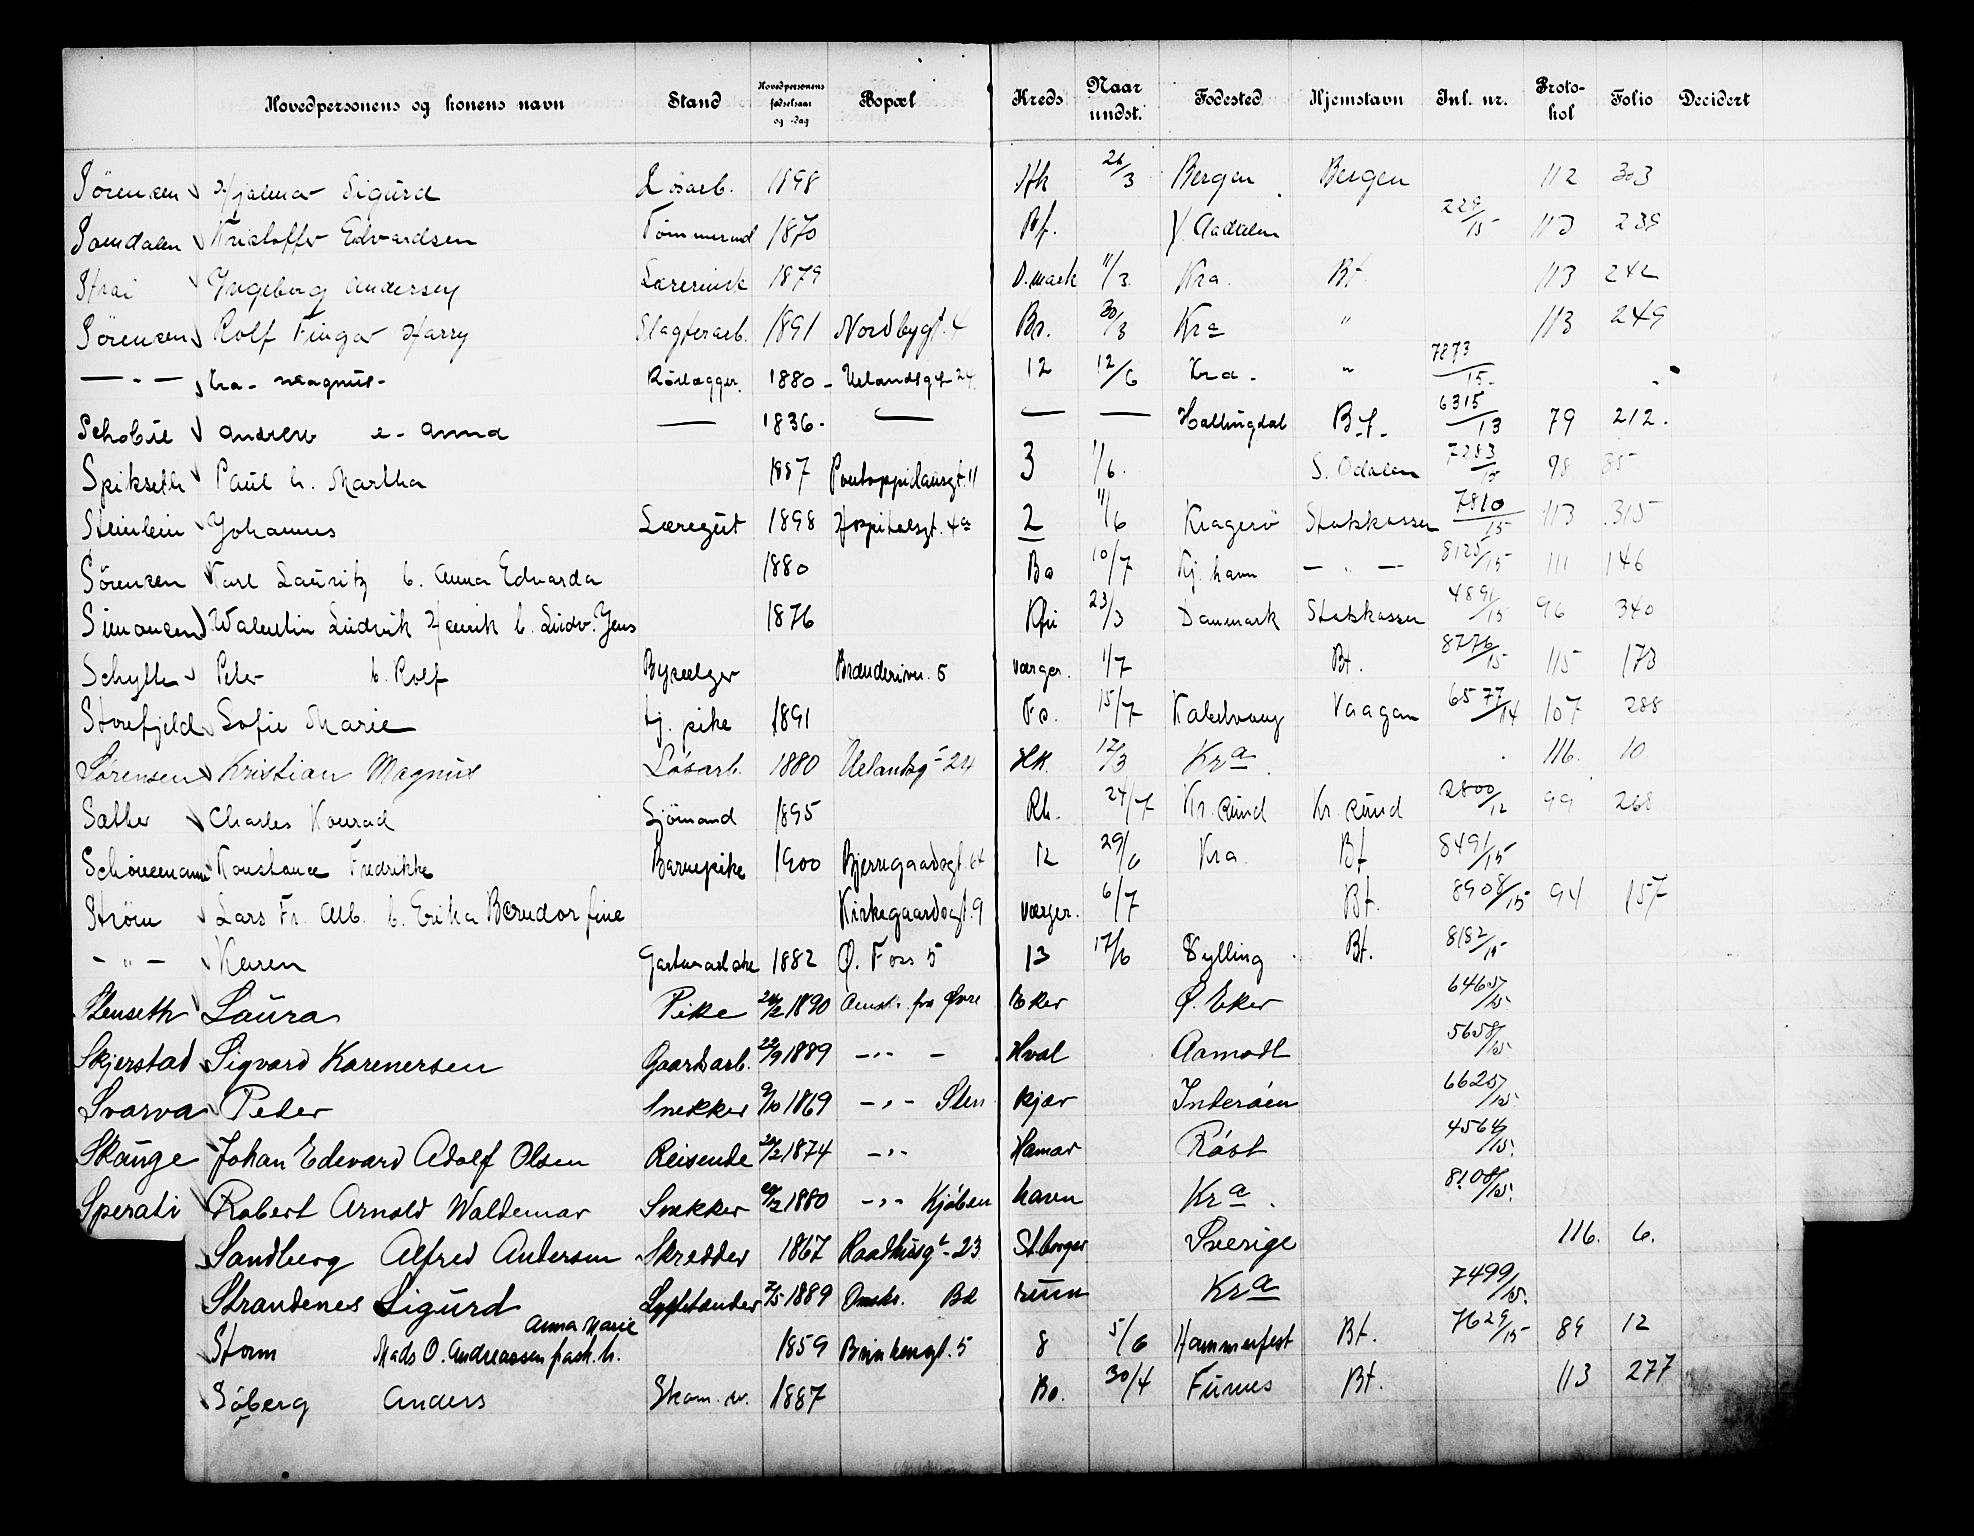 Hovedpersonens og konens navn Stand Hovedpersonens fødselsaar og -dag Bopæl Kreds Naar undst. Fødested Hjemstavn Jnl. nr. Protokol Folio Decidert
Sørensen Hjalmar Sigurd Løsarb. 1898 Hk 26/3 Bergen Bergen 112 303
Kristoffer Edvardsen Tømmermd 1870 Bf. Aadalen 229/15 113 239
Strai Ingeborg Andersen Lærerinde 1879 D.mark 11/3 Kra. Bt. 113 242
Sørensen Rolf Fingar Harry Slagterarb. 1891 Nordbygt. 4 Br. 30/3 Kra " 113 249
— " — Kra. Magnus Rørlægger. 1880 Uelandsgt 24. 12 12/6 Kra. " 7873/15
Andrew e. Anna — 1836. — — — Hallingdal B.f. 6315/13 79 212.
Spikseth Paul h. Martha 1887 Pontoppidansgt. 11 3 1/6. S. Odalen 7283/15 98 85
Steinlein Johannes Læregut 1898 Hospitalsgt. 4a 2 11/6 Kragerø Statskassen 7810/15 113 315
Sørensen Karl Lauritz b. Anna Edvarda 1880 Bo 10/7 Kj.havn — " — 8125/15 111 146
Simonsen Valentin Ludvik Henrik b. Ludv. Jens 1876 23/3 Danmark Statskassen 4891/15 96 340
Peter b. Rolf Byselger Brænderivn. 5 værger. 1/7 Bt. 8776/15 115 173
Storefjeld Sofie Marie tj. pike 1891 Fo. 15/7 Kabelvaag Vaagan 6577/14 107 288
Sørensen Kristian Magnus Løsarb. 1880 Uelandsgt 24 HK. 12/3 Kra 116. 10
Sæther Charles Konrad Sjømand 1895 Rh. 24/7 Kr. sund Kr. sund 2800/12 99 268
Schönemann Konstance Fredrikke Barnepike 1900 Bjerregaardsgt. 64 12 29/6 Kra. Bt 8491/15
Strøm Lars Fr. Alb. b. Erika Berndorfine Kirkegaardsgt. 9 værger. 6/7 Bt. 8908/15 94 157
— " — Karen 1882 Ø. Foss 5 13 17/6 Sylling Bt. 8182/15
Stenseth Laura Pike 1890 Amst. fra Øvre Eker Ø. Eker 6465/15
Skjerstad Sigvard Karenersen Gaardsarb. 1889 — " — Hval Aamodt 5658/15
Svarva Peder Snekker 9/10 1869 — " — Stenkjær Inderøen 6625/15
Skauge Johan Edevard Adolf Olsen Reisende 1874 — " — Hamar Røst 4564/15
Sperati Robert Arnold Waldemar Snekker 1880 — " — Kjøbenhavn Kra. 8108/15
Sandberg Alfred Andersen Skredder 1867 Raadhusgt 23 St.borger Sverige 116. 6.
Strandenes Sigurd 2/5 1889 Kra 7499/15
Anna Marie
Storm Mads O. Andreassen frask. h. 1859 Brinkengt. 5 8 5/6 Hammerfest Bt. 7629/15 89 12
Søberg Anders Skom. sv. 1887 Bo. 30/4 Furnes Bt. 113 277